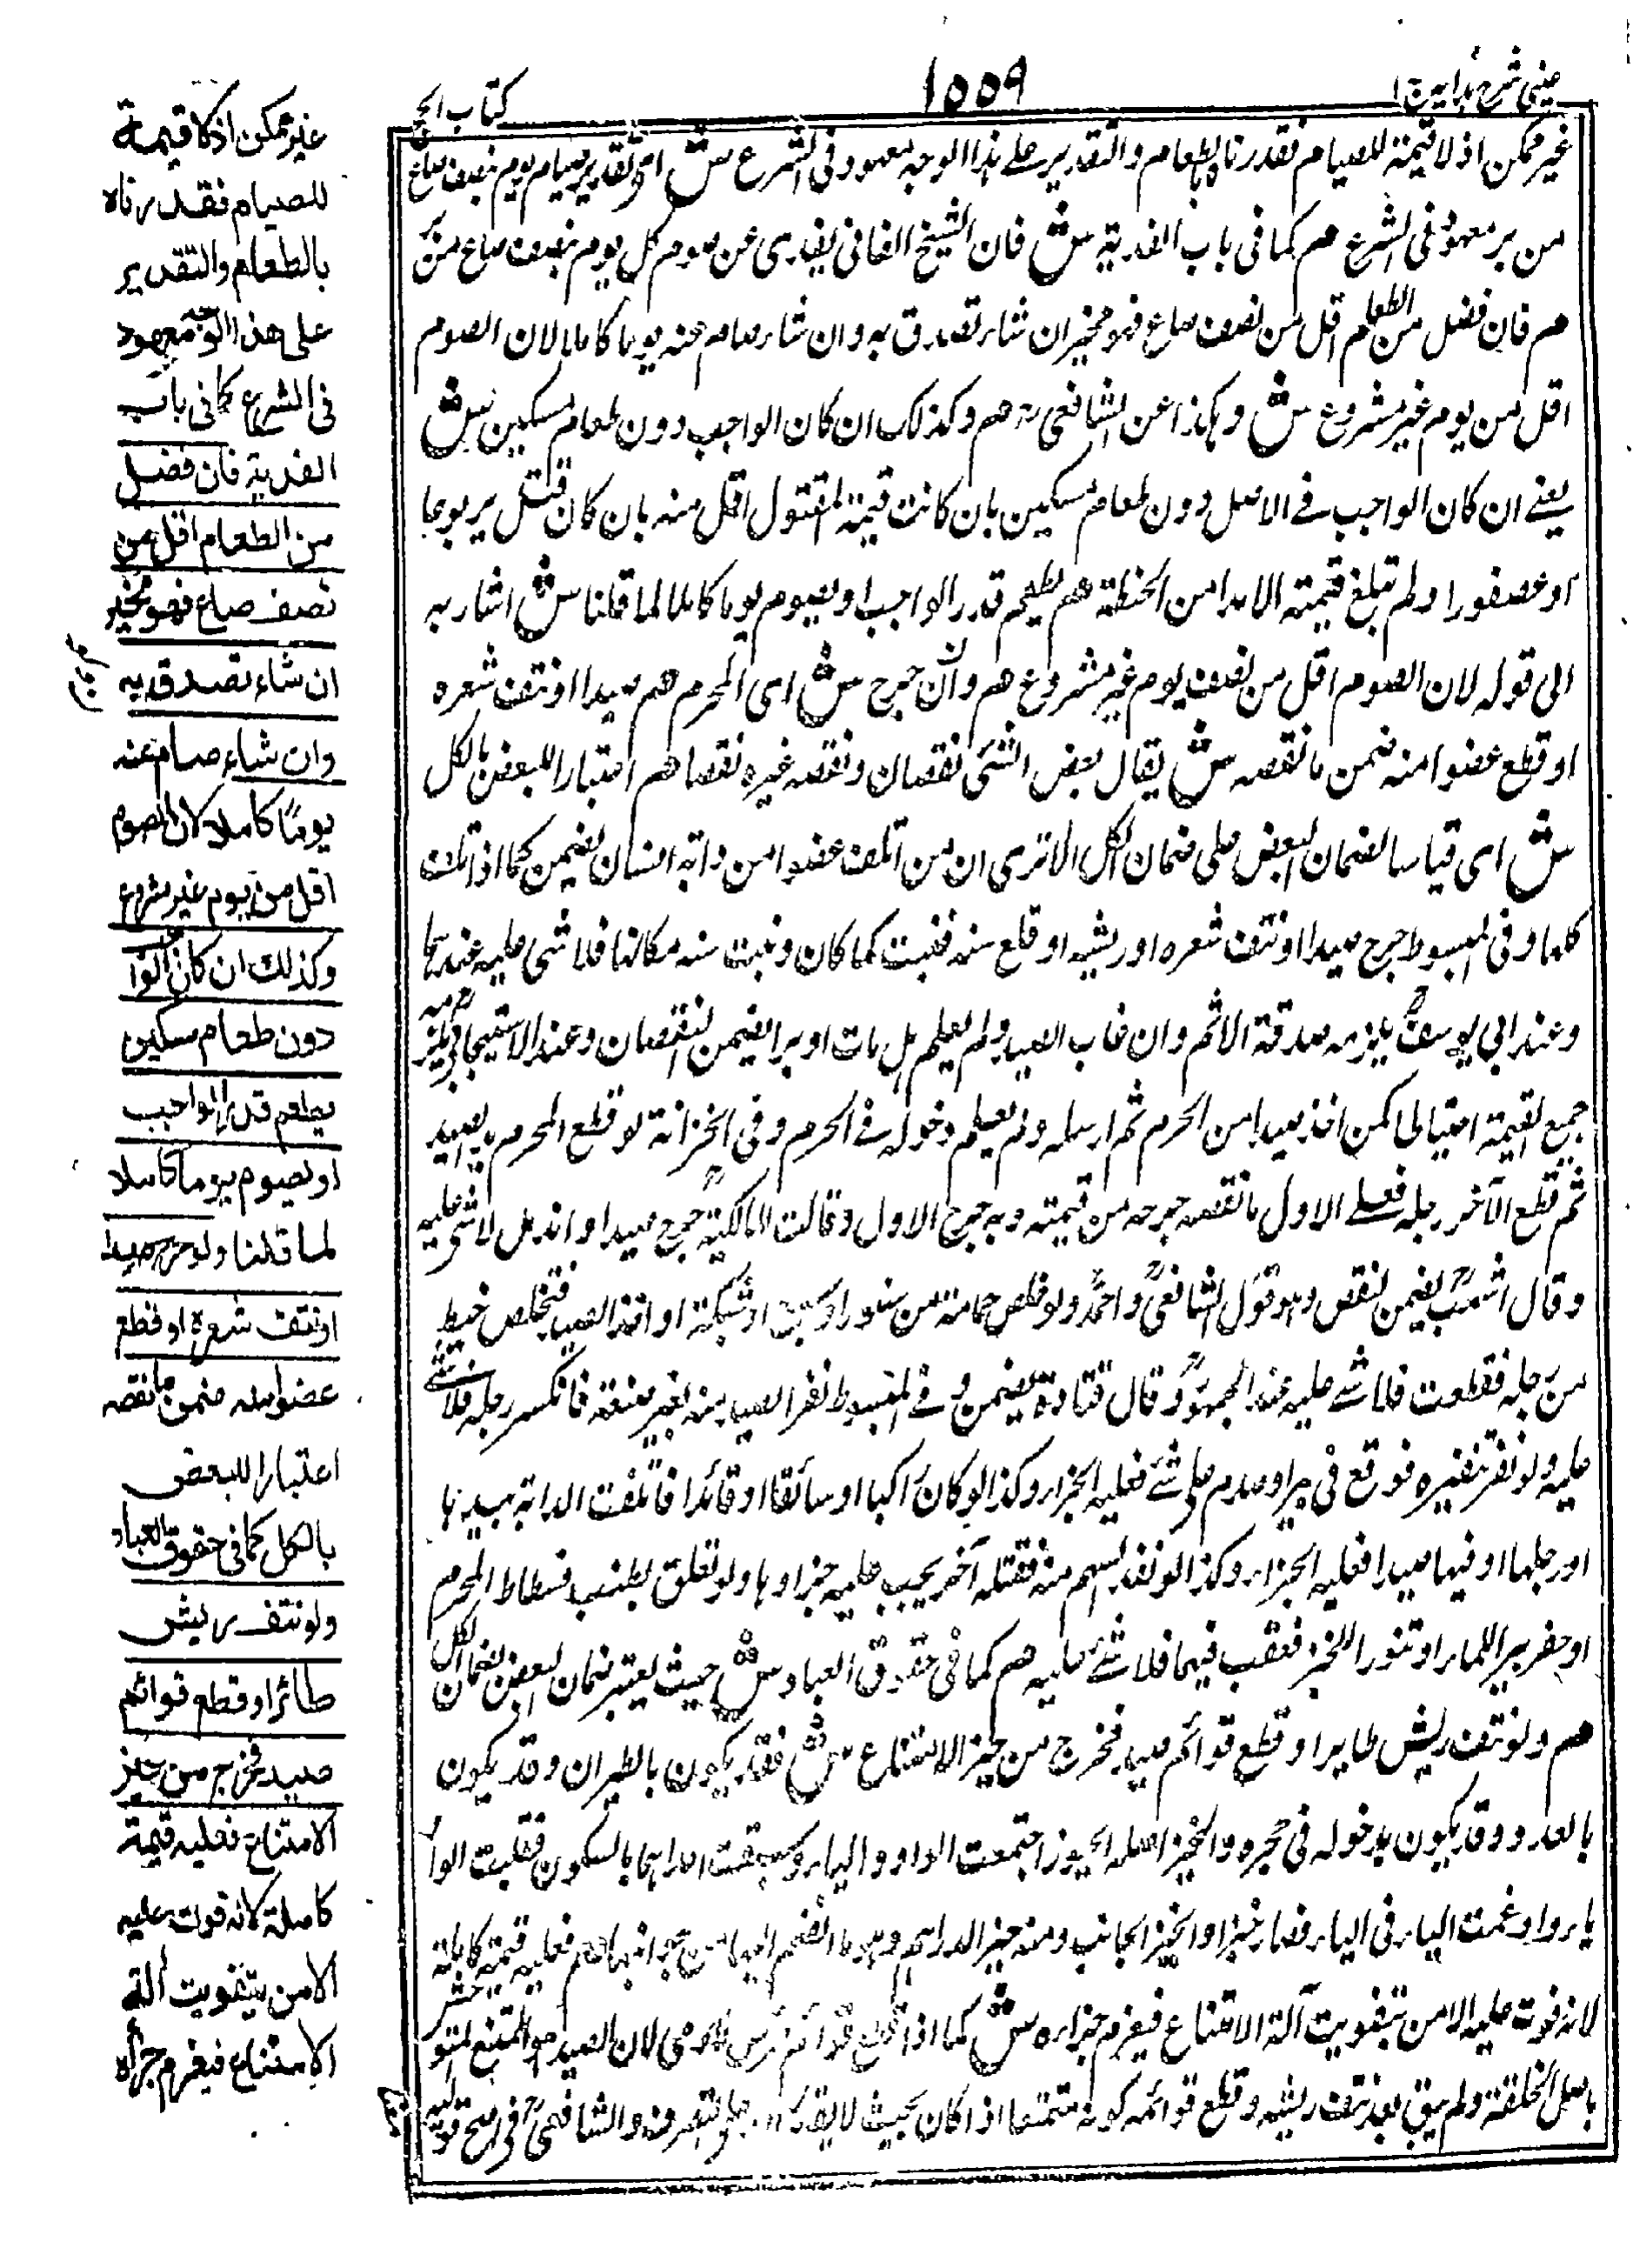 عینی شرح ہدایہ ج ۱
١٥٥٩
كتاب الحج
غير ممكن اذ لا قيمة للصيام فقدرناه بالطعام والتقدير على هذا الوجه معهود فى الشرع ش اى تقدير صيام يوم بنصف صاع
من بر معهود فى الشرع هم كما فى باب الفدية ش فان الشيخ الفانى يفدى عن صوم كل يوم بنصف صاع من بر
هم فان فضل من الطعام اقل من نصف صاع فهو مخير ان شاء تصدق به وان شاء صام عنه يوما كاملا لان الصوم
اقل من يوم غير مشروع ش وهكذا عن الشافعى رح هم وكذلك ان كان الواجب دون طعام مسكين ش
يعنے ان كان الواجب فے الاصل دون طعام مسكين بان كانت قيمة المقتول اقل منه بان كان قتل يربوعا
او عصفورا ولم تبلغ قيمته الا مدا من الحنطة هم يطعم قدر الواجب او يصوم يوما كاملا لما قلنا ش اشار به
الى قوله لان الصوم اقل من نصف يوم غير مشروع هم وان جرح ش اى المحرم هم صيدا او نتف شعره
او قطع عضوا منه ضمن ما نقصه ش يقال بعض الشئ نقصان ونقصه غيره نقصا هم اعتبارا للبعض بالكل
ش اى قياسا لضمان البعض على ضمان الكل الا ترى ان من اتلف عضوا من دابة انسان يضمن كما اذا اتلف
كلها وفى المبسوط جرح صيدا او نتف شعره او ريشه او قلع سنه فنبت كما كان ونبت سنه مكانها فلا شى عليه عندهما
وعند ابى يوسف يلزمه صدقة الالم وان غاب الصيد ولم يعلم هل مات او برا يضمن النقصان وعند الاستيجابى يلزمه
جميع القيمة احتياطا كمن اخذ صيدا من الحرم ثم ارسله ولم يعلم دخوله فے الحرم وفى الخزانة لو قطع المحرم يد صيد
ثم قطع الآخر رجله فعلے الاول ما نقصه جرحه من قيمته وبه جرح الاول وقالت المالكية جرح صيدا واندمل لا شى عليه
وقال اشهب يضمن النقص وهو قول الشافعى واحمد ولو خلص حمامة من سنور او سبع او شبكة او اخذ الصيد فتخلص خيط
من رجله فقطعت فلا شے عليه عند الجمهور وقال قتادة يضمن وفے المبسوط نفر الصيد منه بغير صنعه فانكسر رجله فلا شئے
عليه ولو نفر بتنفيره فوقع فى بير او صدم على شئے فعليه الجزاء وكذا لو كان راكبا او سائقا او قائدا فاتلفت الدابة بيدها
او رجلها او فيها صيدا فعليه الجزاء وكذا لو نفذ السهم منه فقتله آخر يجب عليه جزاؤها ولو تعلق بطنب فسطاط المحرم
او حفر بيرا للماء او تنور الخبز فعقب فيها فلا شئے عليه هم كما فى حقوق العباد ش حيث يعتبر ضمان البعض بضمان الكل
هم ولو نتف ريش طاير او قطع قوائم صيد فخرج من حيز الامتناع ش فقد يكون بالطيران وقد يكون
بالعدو وقد يكون بدخوله فى حجره والحيز اصله الحيوز اجتمعت الواو والياء وسبقت احداهما بالسكون فقلبت الواو
ياء وادغمت الياء فى الياء فصار حيزا والحيز الجانب ومنه حيز الدار وهو ما انضم اليها من جوانبها هم فعليه قيمته كاملة
لانه فوت عليه الامن بتفويت آلة الامتناع فيغرم جزاءه ش كما اذا قطع قوائم فرس لآدمى لان الصيد هو الممتنع المتوحش
باصل الخلقة ولم يبق بعد نتف ريشه وقطع قوائمه كونه ممتنعا اذا كان بحيث لا يقدر على والشافعى رح فى اصح قوليه
غير ممكن اذ لا قيمة
للصيام فقدرناه
بالطعام والتقدير
على هذا الوجه معهود
فى الشرع كما فى باب
الفدية فان فضل
من الطعام اقل من
نصف صاع فهو مخير
ان شاء تصدق به
وان شاء صام عنه
يوما كاملا لان الصوم
اقل من يوم غير مشروع
وكذلك ان كان الوا
دون طعام مسكين
يطعم قدر الواجب
او يصوم يوما كاملا
لما قلنا ولو جرح صيدا
او نتف شعره او قطع
عضوا منه ضمن ما نقصه
اعتبارا للبعض
بالكل كما فى حقوق العباد
ولو نتف ريش
طائر او قطع قوائم
صيد فخرج من حيز
الامتناع فعليه قيمة
كاملة لانه فوت عليه
الامن بتفويت الة
الامتناع فيغرم جزاه